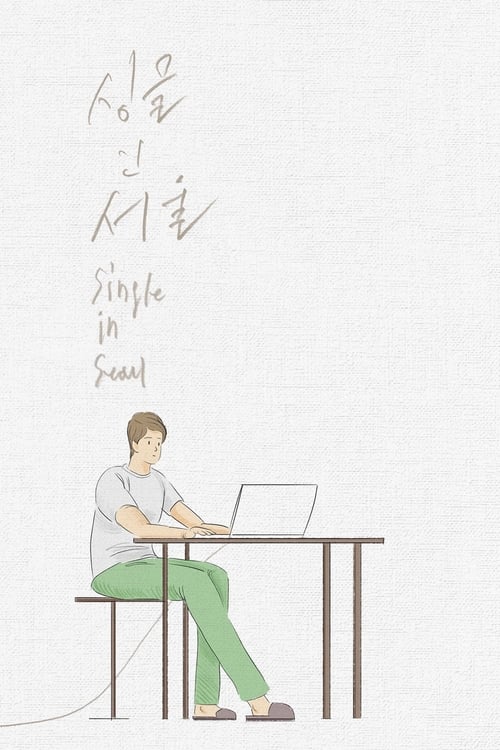 싱글
인
서울
Single
in
Seoul